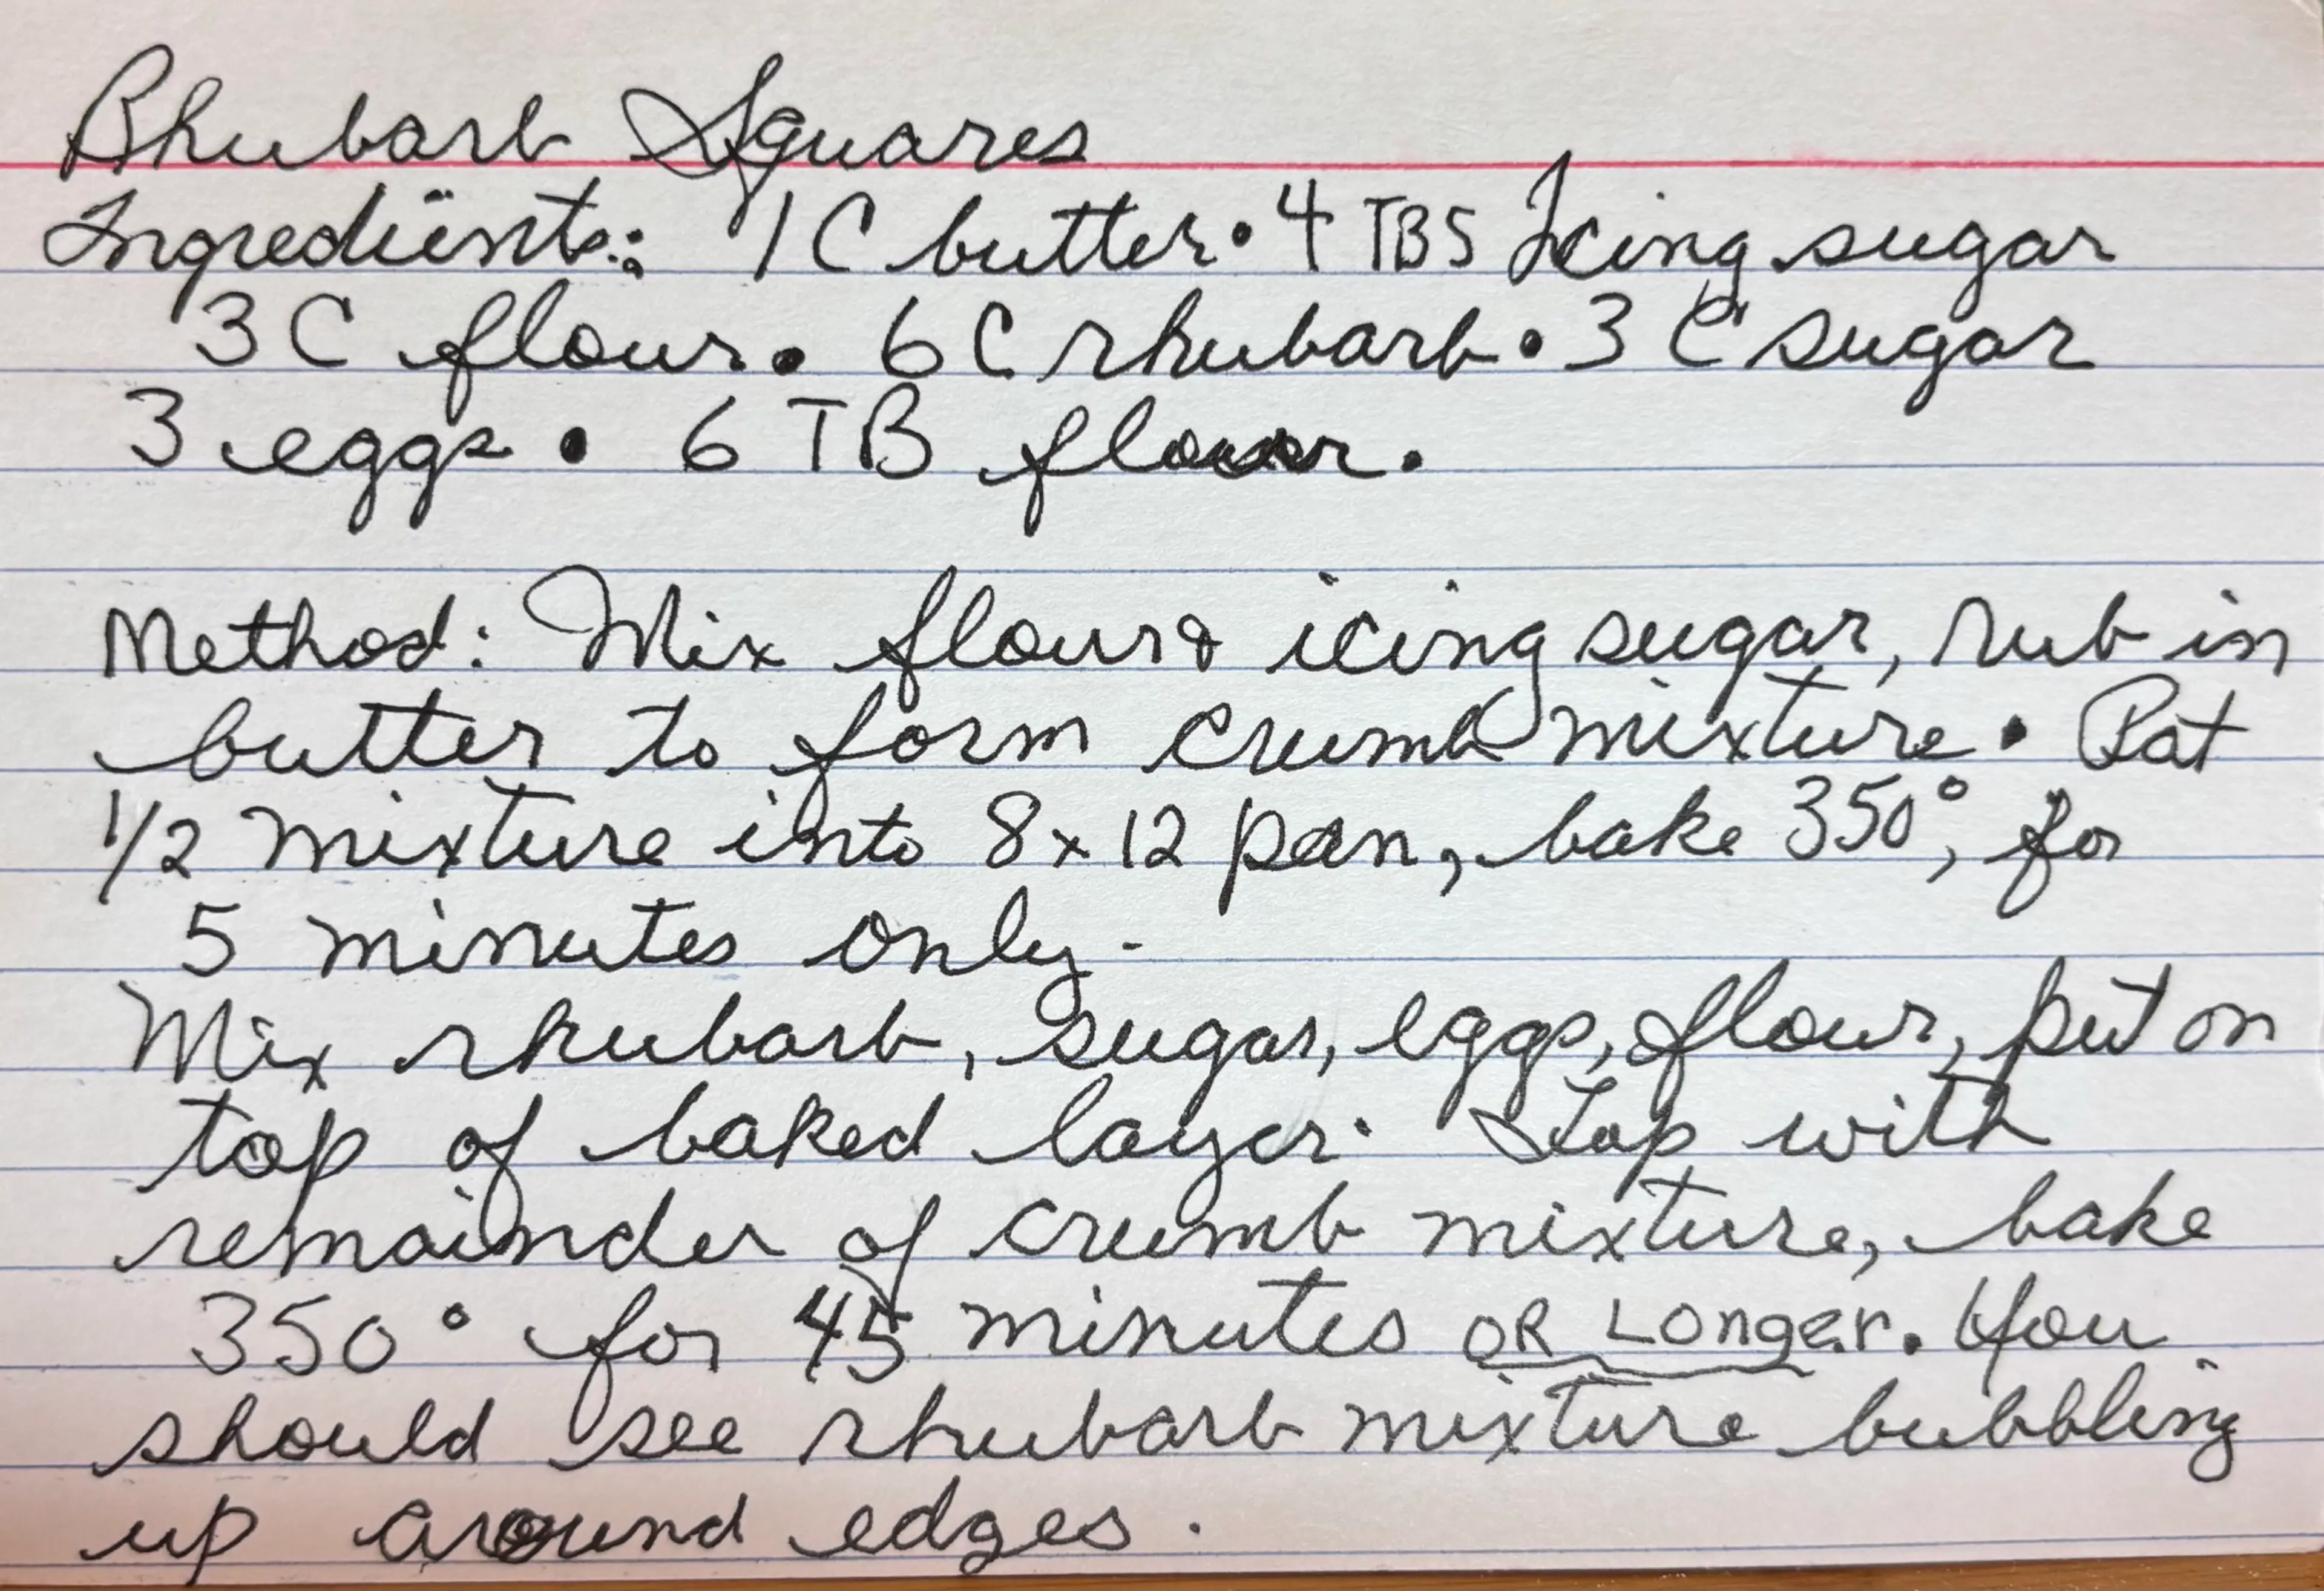 Rhubarb Squares
Ingredients: 1 C butter • 4 TBS Icing sugar
3 C flour • 6 C rhubarb • 3 C sugar
3 eggs • 6 TB flour.
Method: Mix flour & icing sugar, rub in
butter to form crumb mixture • Pat
1/2 mixture into 8 x 12 pan, bake 350°, for
5 minutes only.
Mix rhubarb, sugar, eggs, flour, put on
top of baked layer. Top with
remainder of crumb mixture, bake
350° for 45 minutes OR Longer. You
should see rhubarb mixture bubbling
up around edges.